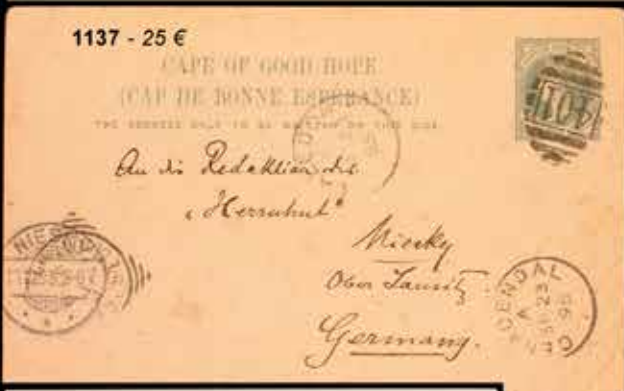 1137 - 25 €
CAPE OF GOOD HOPE.
(CAP DE BONNE ESPERANCE)
THE ADDRESS ONLY TO BE WRITTEN ON THIS SIDE.
401
An die Redaktion des
"Herrnhut"
Niesky
Ober Lausitz
Germany.
NIESKY
GENADENDAL
A
SP 23
95